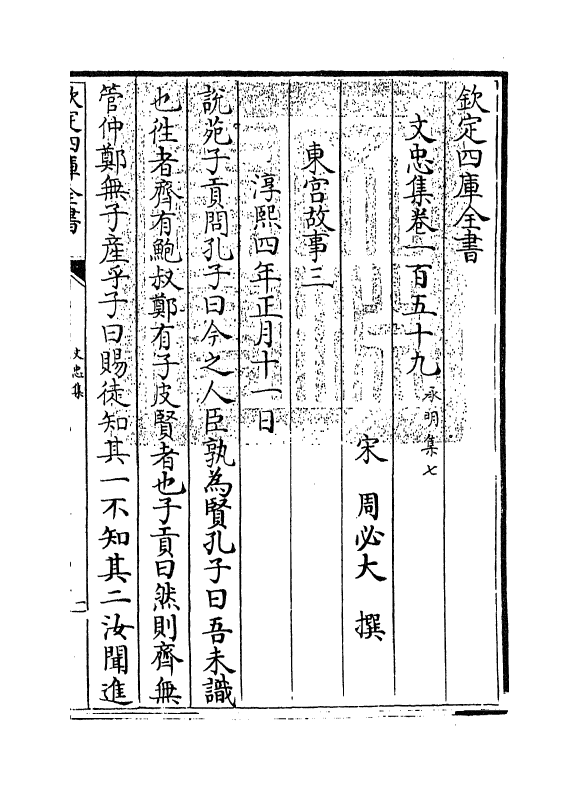 欽定四庫全書
文忠集卷一百五十九 承明集七
宋 周必大 撰
東宫故事三
淳熙四年正月十一日
説苑子貢問孔子曰今之人臣孰為賢孔子曰吾未識
也徃者齊有鮑叔鄭有子皮賢者也子貢曰然則齊無
管仲鄭無子産乎子曰賜徒知其一不知其二汝聞進
欽定四庫全書
文忠集